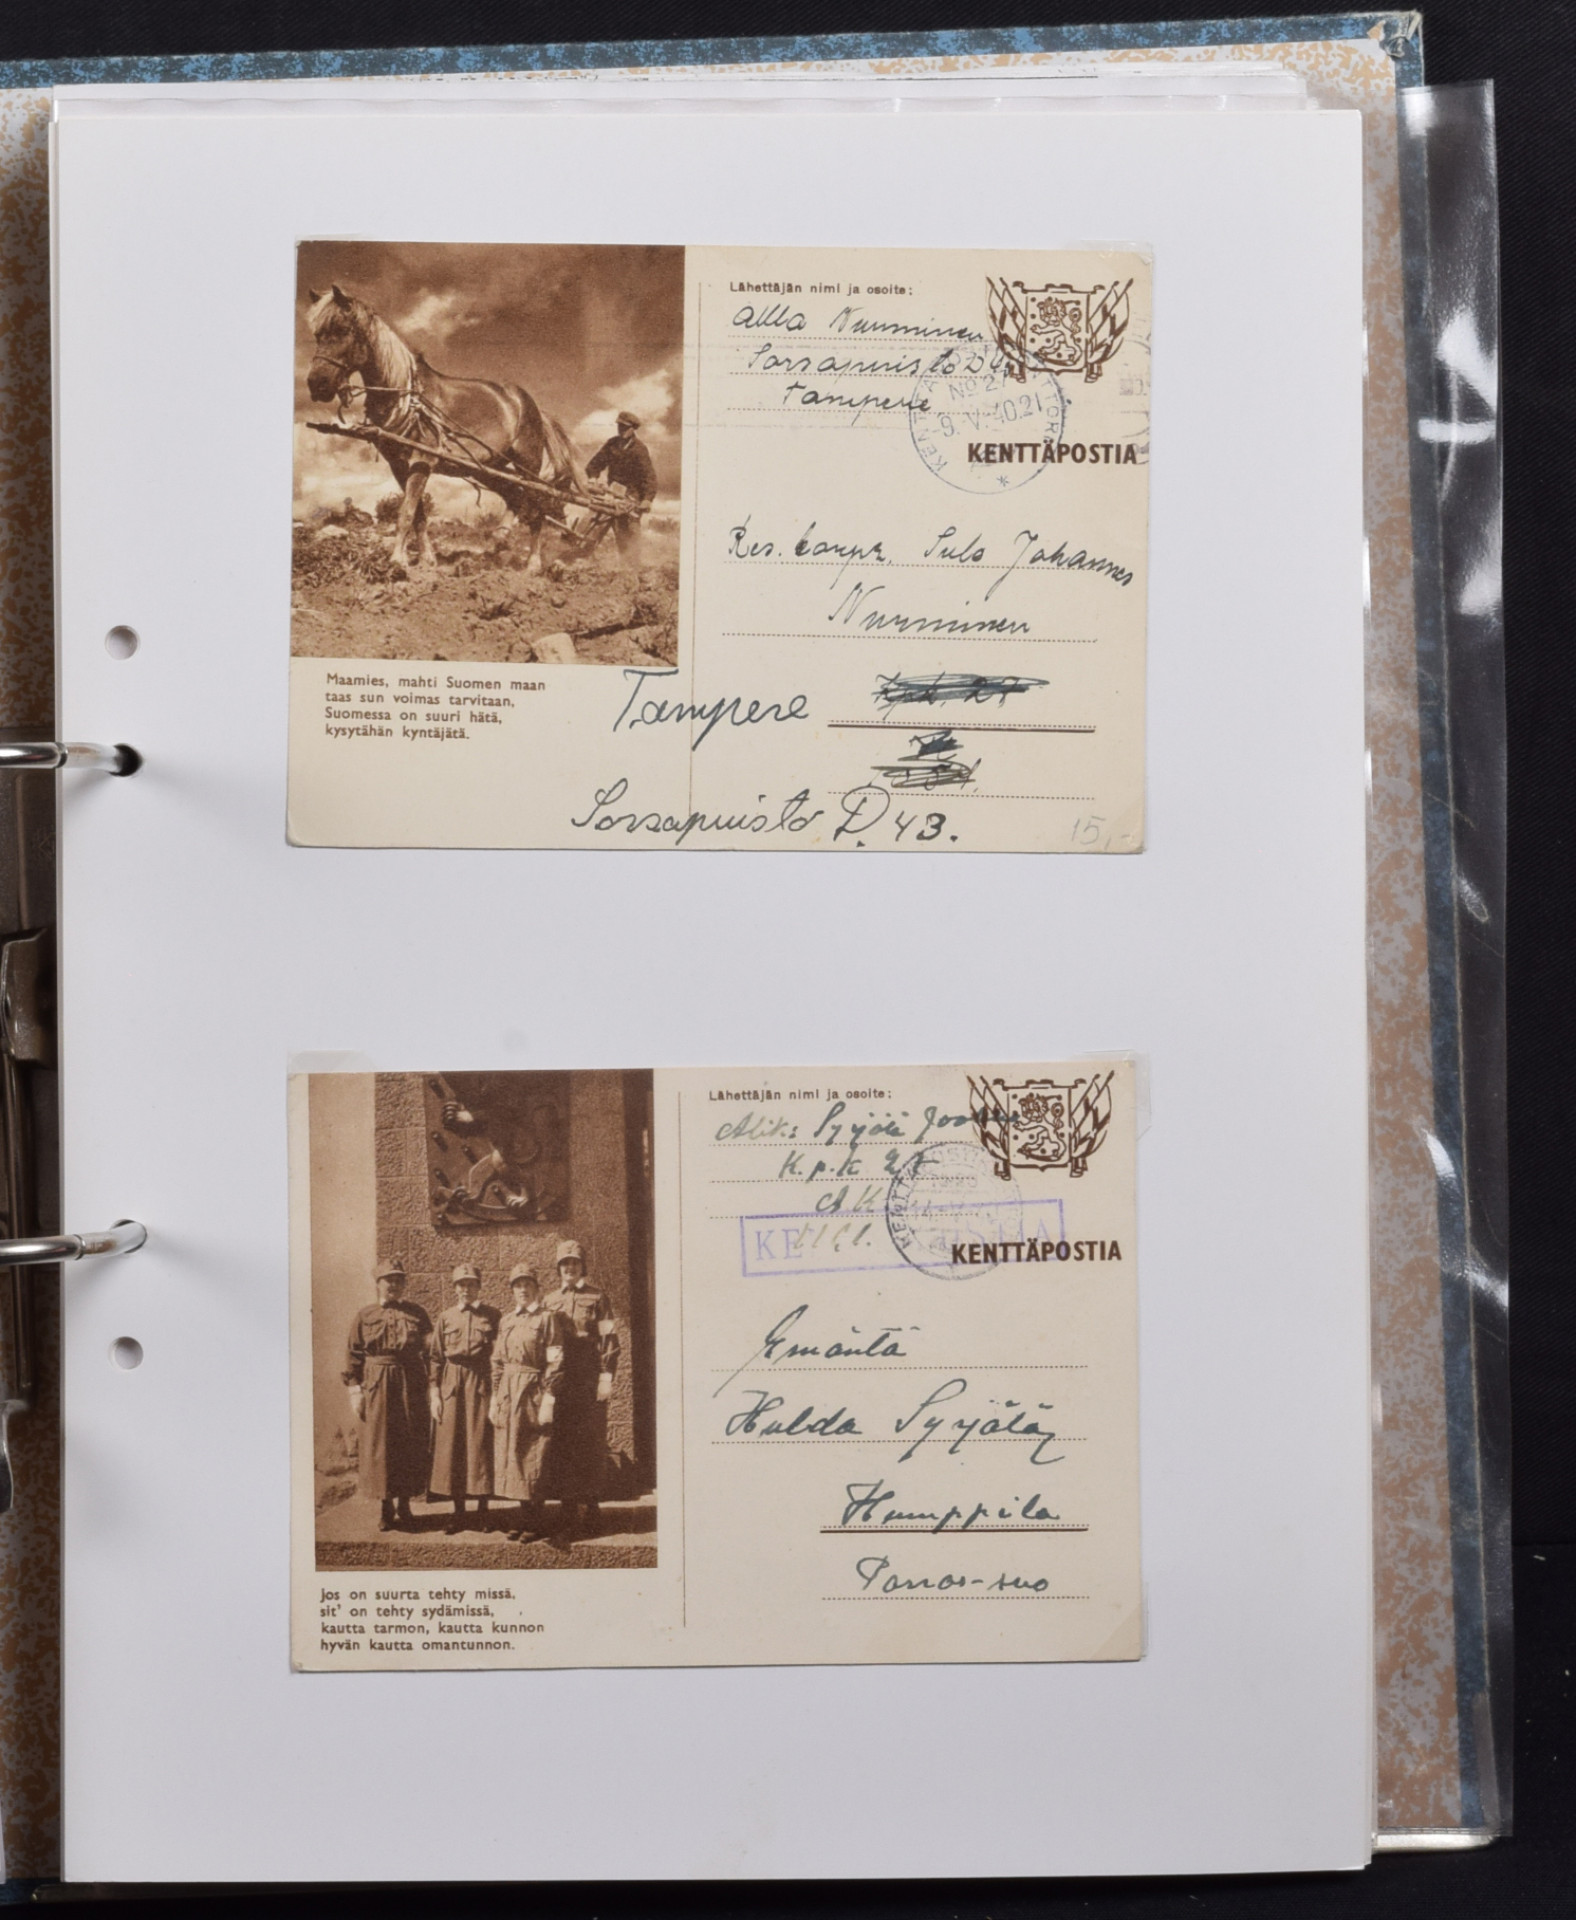 Lähettäjän nimi ja osoite:
Nurminen
Sorsapuisto D 43
Tampere
No 27
9.-V.40.21
KENTTÄPOSTIA
Res. Sulo Johannes
Nurminen
Tampere
Sorsapuisto D. 43.
15,-
Maamies, mahti Suomen maan
taas sun voimas tarvitaan,
Suomessa on suuri hätä,
kysytähän kyntäjätä.
Lähettäjän nimi ja osoite:
Alik: Syrjälä
K.p.k
KENTTÄPOSTIA
Emäntä
Hulda Syrjälä
Humppila
Jos on suurta tehty missä,
sit' on tehty sydämissä,
kautta tarmon, kautta kunnon
hyvän kautta omantunnon.